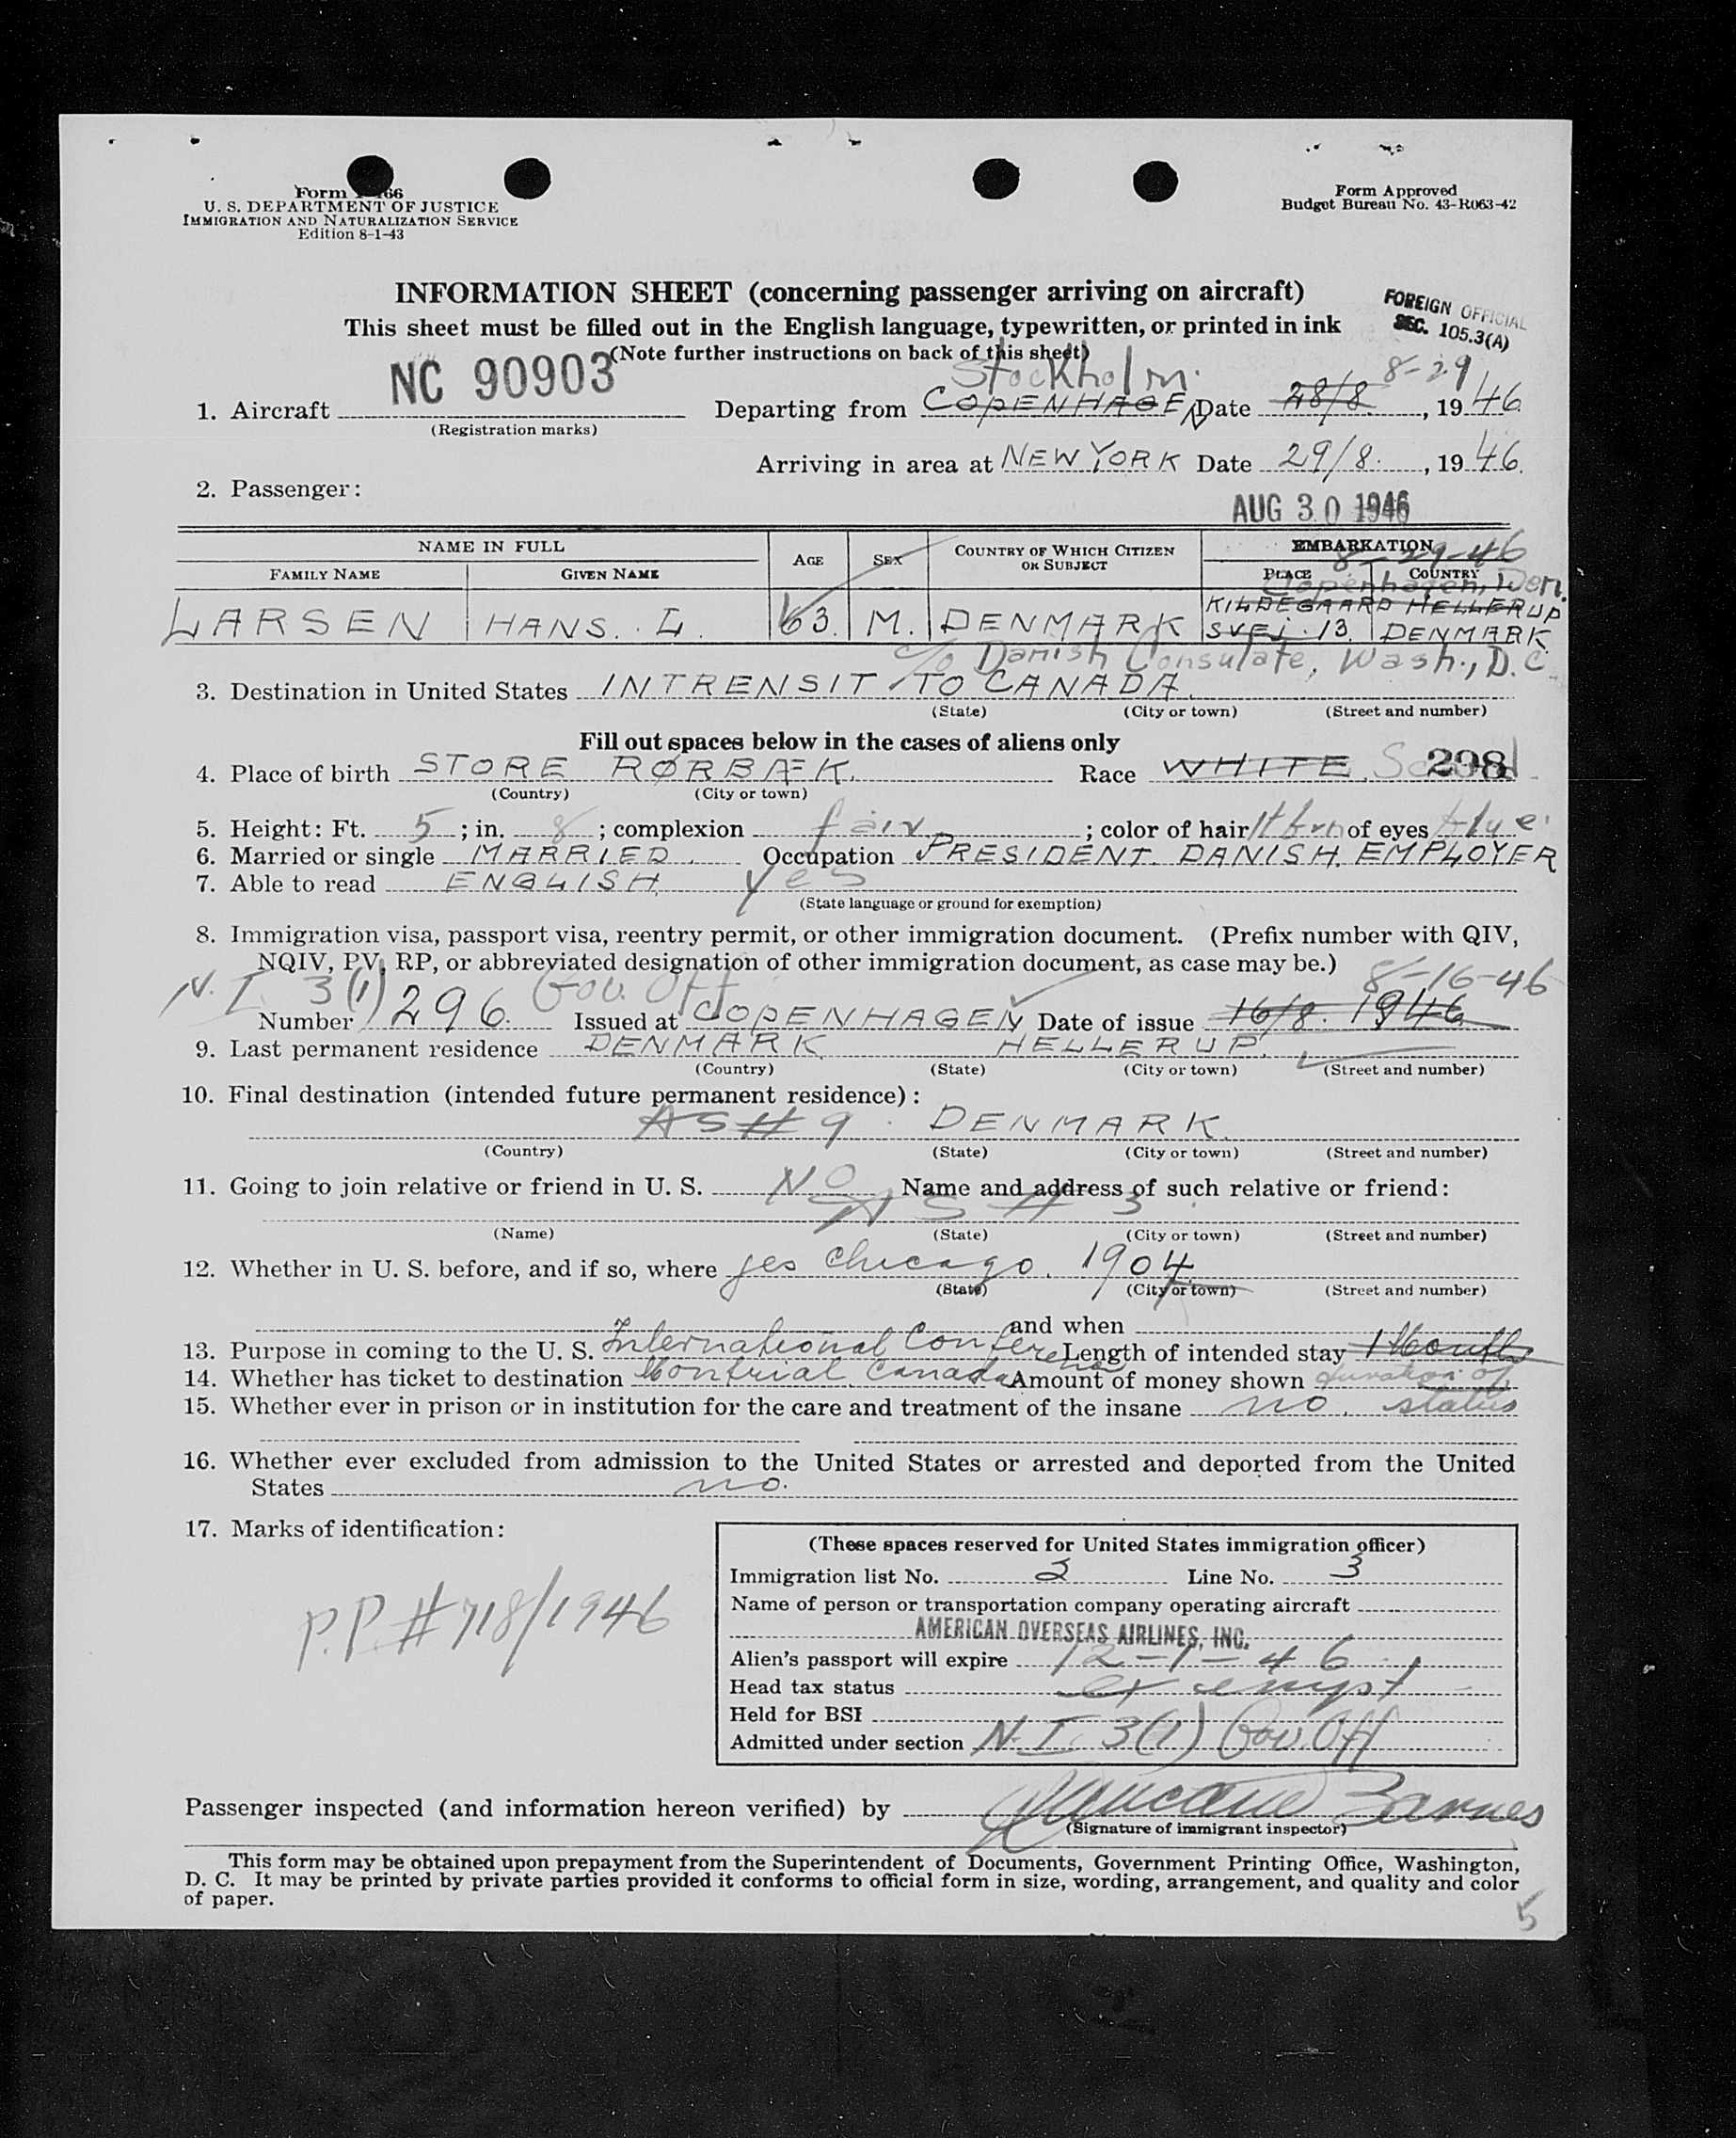 Form 466
U. S. DEPARTMENT OF JUSTICE
IMMIGRATION AND NATURALIZATION SERVICE
Edition 8-1-43
Form Approved
Budget Bureau No. 43-R063-42
INFORMATION SHEET (concerning passenger arriving on aircraft)
This sheet must be filled out in the English language, typewritten, or printed in ink
(Note further instructions on back of this sheet)
FOREIGN OFFICIAL
SEC. 105.3(A)
Stockholm. 8-29
1. Aircraft NC 90903 Departing from COPENHAGEN Date 28/8 , 1946
(Registration marks)
Arriving in area at NEW YORK Date 29/8. , 1946.
2. Passenger:
AUG 30 1946
NAME IN FULL AGE SEX COUNTRY OF WHICH CITIZEN OR SUBJECT EMBARKATION
8-29-46
FAMILY NAME GIVEN NAME PLACE COUNTRY
Copenhagen, Den.
LARSEN HANS. L. 63. M. DENMARK KILDEGAARD HELLERUP
SVEJ. 13. DENMARK
c/o Danish Consulate, Wash., D.C.
3. Destination in United States INTRENSIT TO CANADA.
(State) (City or town) (Street and number)
Fill out spaces below in the cases of aliens only
4. Place of birth STORE RØRBÆK. Race WHITE 298
(Country) (City or town)
5. Height: Ft. 5 ; in. 8 ; complexion fair ; color of hair lt brn of eyes blue
6. Married or single MARRIED. Occupation PRESIDENT. DANISH. EMPLOYER
7. Able to read ENGLISH yes
(State language or ground for exemption)
8. Immigration visa, passport visa, reentry permit, or other immigration document. (Prefix number with QIV,
NQIV, PV, RP, or abbreviated designation of other immigration document, as case may be.)
N.I. 3(1) Gov. Off 8-16-46
Number 296. Issued at COPENHAGEN Date of issue 16/8. 1946
9. Last permanent residence DENMARK HELLERUP.
(Country) (State) (City or town) (Street and number)
10. Final destination (intended future permanent residence):
AS # 9 DENMARK.
(Country) (State) (City or town) (Street and number)
11. Going to join relative or friend in U. S. NO Name and address of such relative or friend:
AS # 3
(Name) (State) (City or town) (Street and number)
12. Whether in U. S. before, and if so, where yes Chicago. 1904.
(State) (City or town) (Street and number)
and when
13. Purpose in coming to the U. S. International Conference Length of intended stay 1 Month
14. Whether has ticket to destination Montrial Canada Amount of money shown duration of
15. Whether ever in prison or in institution for the care and treatment of the insane no. status
16. Whether ever excluded from admission to the United States or arrested and deported from the United
States no.
17. Marks of identification:
P.P. # 718/1946
(These spaces reserved for United States immigration officer)
Immigration list No. 2 Line No. 3
Name of person or transportation company operating aircraft
AMERICAN OVERSEAS AIRLINES, INC.
Alien's passport will expire 12-1-46
Head tax status exempt
Held for BSI
Admitted under section N.I. 3(1) Gov. Off
Passenger inspected (and information hereon verified) by Barnes
(Signature of immigrant inspector)
This form may be obtained upon prepayment from the Superintendent of Documents, Government Printing Office, Washington,
D. C. It may be printed by private parties provided it conforms to official form in size, wording, arrangement, and quality and color
of paper.
5